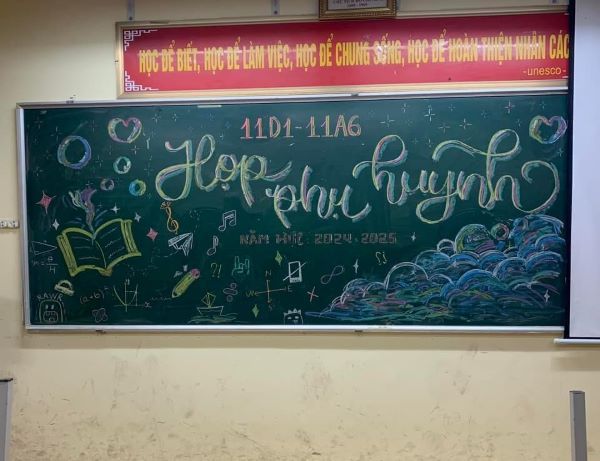 HỌC ĐỂ BIẾT, HỌC ĐỂ LÀM VIỆC, HỌC ĐỂ CHUNG SỐNG, HỌC ĐỂ HOÀN THIỆN NHÂN CÁC
-unesco-
11D1-11A6
Họp phụ huynh
NĂM HỌC: 2024-2025
RAWR
(a+b)²
?!
N
E